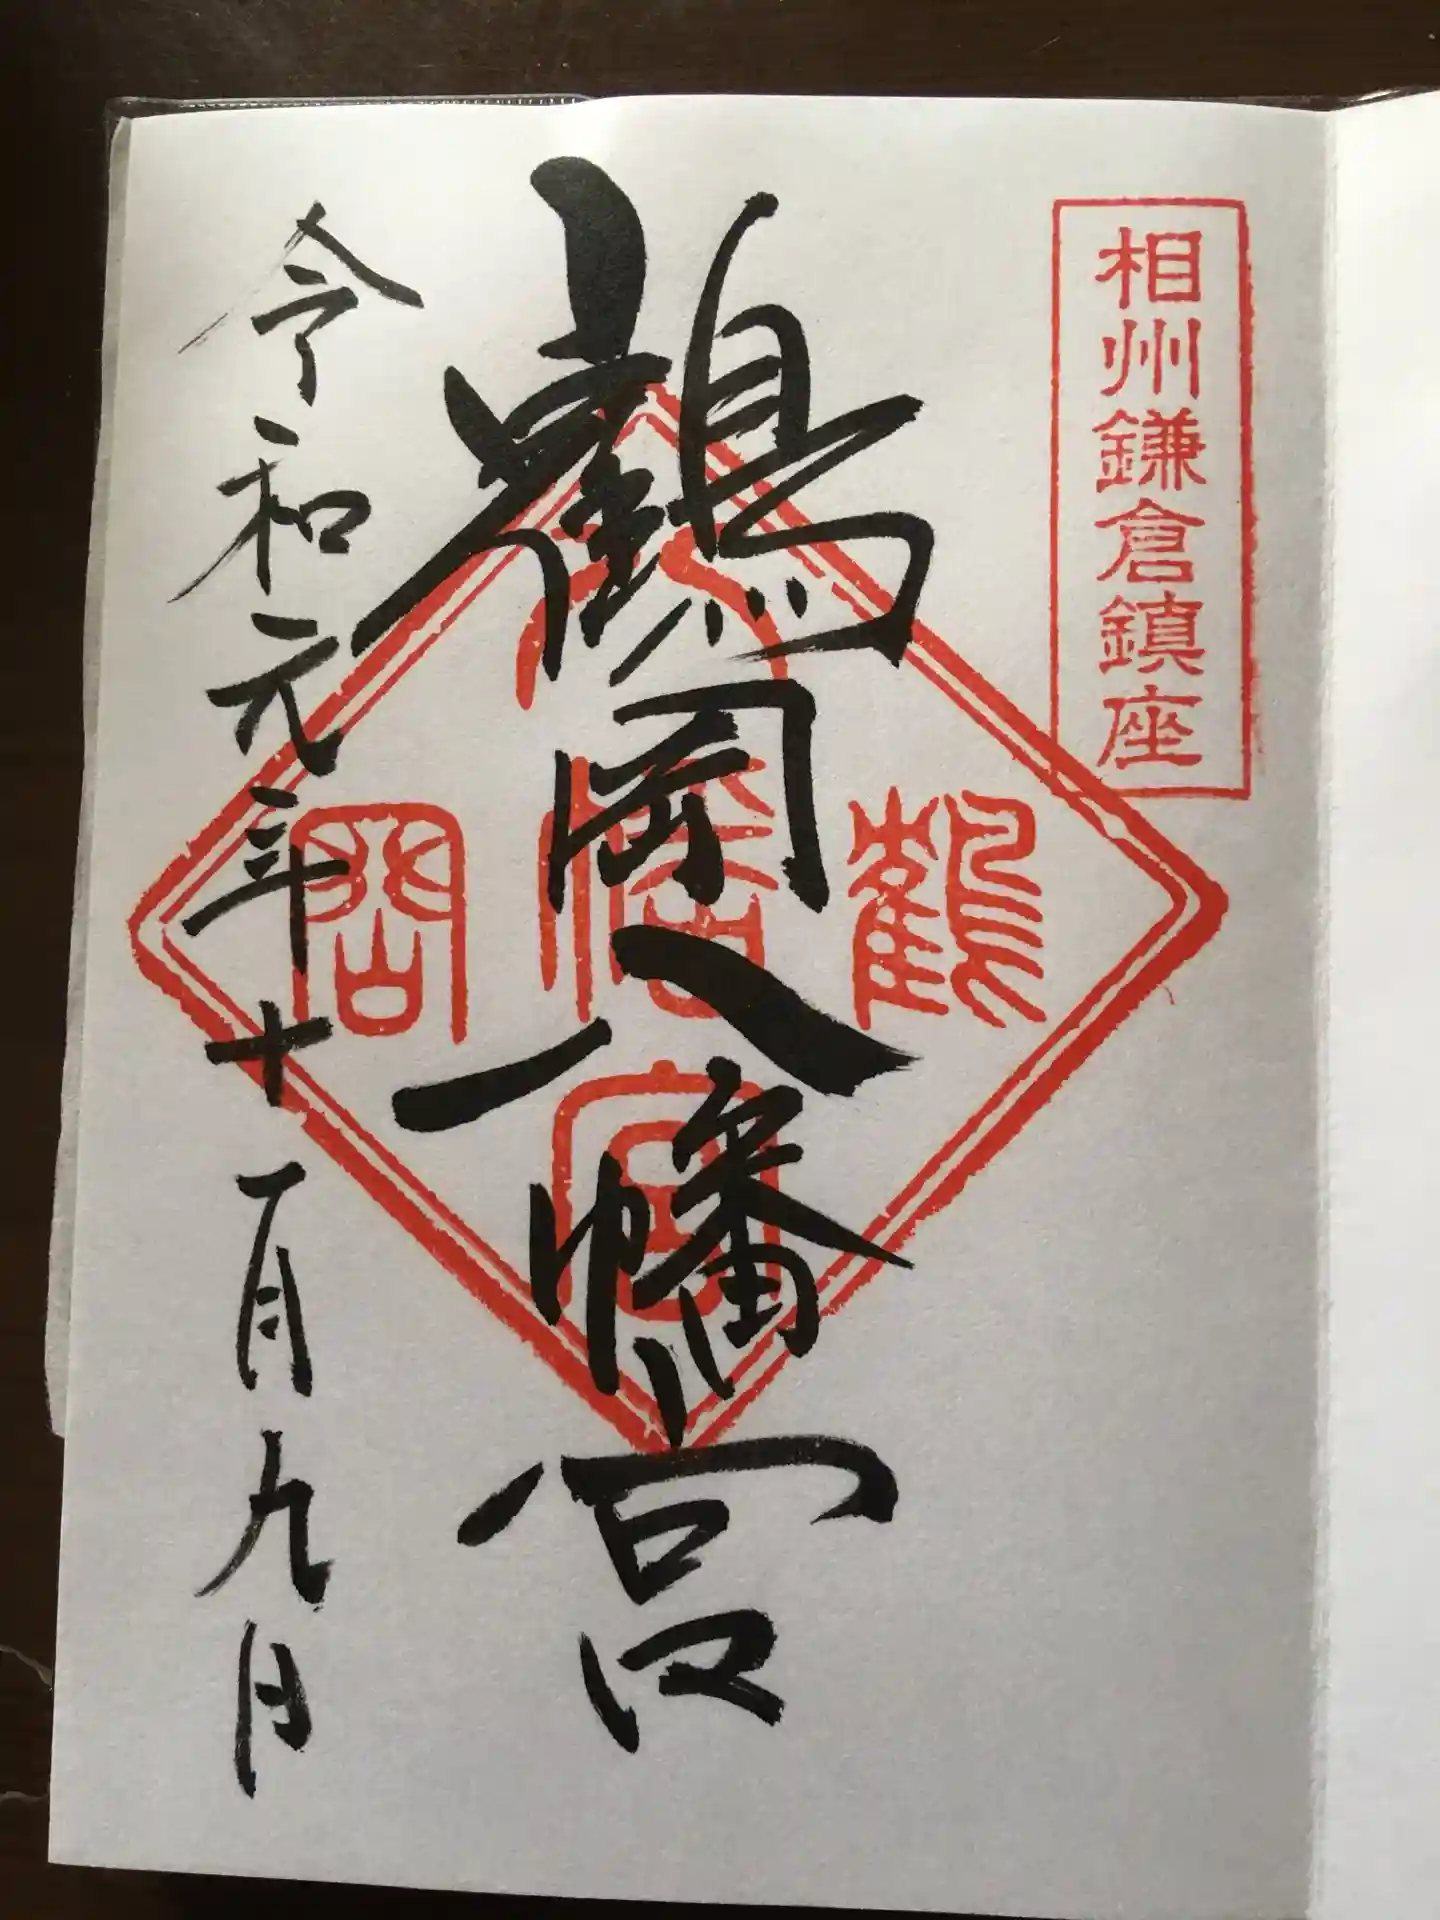 相州鎌倉鎮座
鶴岡八幡宮
八
鶴幡岡
宮
令和元年十一月九日